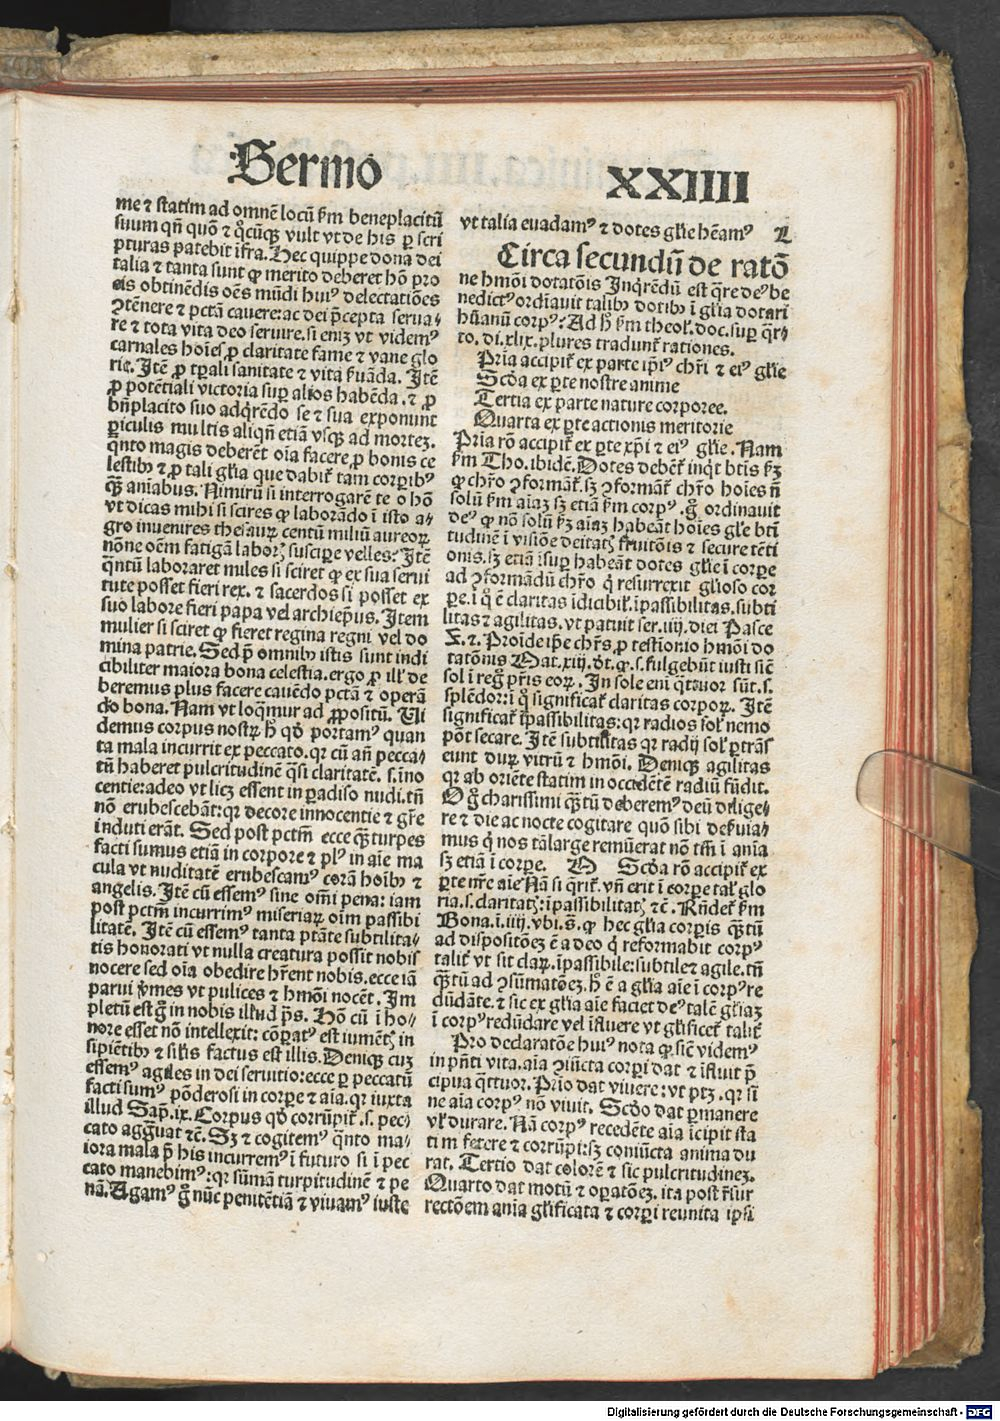 Sermo XXIIII
me ⁊ statim ad omnē locū ẜm beneplacitū
suum qn̄ quō ⁊ q̊cūqꝫ vult vt de his ꝑ scri
pturas patebit īfra. Hec quippe dona dei
talia ⁊ tanta sunt ꝙ merito deberet hō pro
eis obtinēdis oēs mūdi huiꝰ delectatiōes
ꝯtēnere ⁊ pctā cauere: ac dei p̄cepta serua⸗
re ⁊ tota vita deo seruire. si eniꝫ vt videmꝰ
carnales hoīes ꝓ claritate fame ⁊ vane glo
rie. Itē ꝓ tꝑali sanitate ⁊ vita ẜuāda. Itē
ꝓ potētiali victoria suꝑ alios habēda. ⁊ ꝓ
bn̄placito suo adq̄rēdo se ⁊ sua exponunt
ꝑiculis multis aliqn̄ etiā vsqꝫ ad morteꝫ.
q̄nto magis deberēt oīa facere ꝓ bonis ce
lestibꝰ ⁊ ꝓ tali gl̄ia que dabit̄ tam corꝑibꝰ
qꝫ̄ aniabus. Nimirū si interrogarē te o hō
vt dicas mihi si scires ꝙ laborādo ī isto a⸗
gro inuenires thesaurꝫ centū miliū aureoꝝ
nōne oēm fatigā laborꝫ suscipe velles? Itē
q̄ntū laboraret miles si sciret ꝙ ex sua serui
tute posset fieri rex. ⁊ sacerdos si posset ex
suo labore fieri papa vel archiep̄us. Item
mulier si sciret ꝙ fieret regina regni vel do
mina patrie. Sed p̄ omnibꝰ istis sunt indi
cibiliter maiora bona celestia. ergo ꝓ ill̄ de
beremus plus facere cauēdo pctā ⁊ operā
do bona. Nam vt loq̄mur ad ꝓpositū. Vi
demus corpus nostrꝫ h̊ qd̄ portamꝰ quan
ta mala incurrit ex peccato. qꝛ cū an̄ pecca⸗
tū haberet pulcritudinē q̄si claritatē. s. īno
centie: adeo vt licꝫ essent in ꝑadiso nudi. tn̄
nō erubescebāt: qꝛ decore innocentie ⁊ gr̄e
induti erāt. Sed post pctm̄ ecce qꝫ̄ turpes
facti sumus etiā in corpore ⁊ plꝰ in aīe ma
cula vt nuditatē erubescamꝰ corā hoībꝰ ⁊
angelis. Itē cū essemꝰ sine om̄i pena: iam
post pctm̄ incurrimꝰ miseriaꝝ oīm passibi
litatē. Itē cū essemꝰ tanta ptāte subtilita⸗
tis honorati vt nulla creatura possit nobis
nocere sed oīa obedire hr̄ent nobis. ecce iā
parui v̄mes vt pulices ⁊ hmōi nocēt. Im
pletū est g̊ in nobis illud p̄s. Hō cū ī ho⸗
nore esset nō intellexit: cōꝑatꝰ est iumētꝫ in
sipiētibꝰ ⁊ silis factus est illis. Deniqꝫ cuꝫ
essemꝰ agiles in dei seruitio: ecce ꝑ peccatū
facti sumꝰ pōderosi in corpe ⁊ aīa. qꝛ iuxta
illud Sap̄. ix. Corpus qd̄ corrūpit̄. s. pec⸗
cato aggrauat ⁊c̄. Sꝫ ⁊ cogitemꝰ q̄nto ma⸗
iora mala p̄ his incurremꝰ ī futuro si ī pec
cato manebimꝰ: qꝛ sūmam turpitudinē ⁊ pe
nā. Agamꝰ g̊ nūc penitētiā ⁊ viuamꝰ iuste
vt talia euadamꝰ ⁊ dotes gl̄ie hēamꝰ L
Circa secundū de ratō
ne hmōi dotatōis Inq̄rēdū est q̄re deꝰ be
nedictꝰ ordīauit talibꝰ dotibꝰ ī gl̄ia dotari
hūanū corpꝰ? Ad h̊ ẜm theol. doc. suꝑ q̄r⸗
to. di. xlix. plures tradunt̄ rationes.
Pria accipit̄ ex parte ip̄iꝰ chr̄i ⁊ eiꝰ gl̄ie
Scd̄a ex ꝑte nostre anime
Tertia ex parte nature corporee.
Quarta ex ꝑte actionis meritorie
Pria rō accipit̄ ex ꝑte xp̄i ⁊ eiꝰ gl̄ie. Nam
ẜm Tho. ibidē. Dotes debēt̄ inq̄t bt̄is ẜꝫ
ꝙ chr̄o ꝯformāt̄. sꝫ ꝯformāt̄ chr̄o hoīes nō
solū ẜm aīaꝫ sꝫ etiā ẜm corpꝰ. g̊ ordinauit
deꝰ ꝙ nō solū ẜꝫ aīaꝫ habeāt hoīes gl̄e bt̄i
tudinē ī visiōe deitatꝫ fruitōis ⁊ secure tēti
onis. sꝫ etiā īsuꝑ habeāt dotes gl̄ie ī corpe
ad ꝯformādū chr̄o q̇ resurrexit gl̄ioso cor
pe. ī q̊ ē claritas īdicibil̄. īpassibilitas. subti
litas ⁊ agilitas. vt patuit ser. iiij. diei Pasce
F. ⁊. Proīde ip̄e chr̄s ꝓ testionio hmōi do
tatōnis Mat. xiij. dt̄. ꝙ. s. fulgebūt iusti sic̄
sol ī reg̊ pr̄is eoꝝ. In sole eni q̄tuor sūt. s.
splēdor: ī q̊ significat̄ claritas corpoꝝ. Itē
significat̄ īpassibilitas: qꝛ radios sol̄ nemo
pōt secare. Itē subtilitas qꝛ radij sol̄ ꝑtrās
eunt durꝫ vitrū ⁊ hmōi. Deniqꝫ agilitas
qꝛ ab oriēte statim in occidētē radiū fūdit.
O g̊ charissimi qꝫ̄tū deberemꝰ deū dilige⸗
re ⁊ die ac nocte cogitare quō sibi deẜuia⸗
mus q̇ nos tālarge remūerat nō tm̄ ī aīa
sꝫ etiā ī corpe. M Scd̄a rō accipit̄ ex
ꝑte nr̄e aīe Nā si q̄rit̄. vn̄ erit ī corpe tal̄ glo
ria. s. claritatꝫ: īpassibilitatꝫ ⁊c̄. Rn̄det̄ ẜm
Bona. ī. iiij. vbi. s. ꝙ hec gl̄ia corpis qꝫ̄tū
ad dispositōeꝫ ē a deo q̇ reformabit corpꝰ
talit̄ vt sit clarꝫ. īpassibile: subtile ⁊ agile. tn̄
qꝫ̄tū ad ꝯsūmatōeꝫ. h̊ ē a gl̄ia aīe ī corpꝰ re
dūdāte. ⁊ sic ex gl̄ia aīe faciet deꝰ talē gl̄iaꝫ
ī corpꝰ redūdare vel īfluere vt gl̄ificet̄ talit̄
Pro declaratōe huiꝰ nota ꝙ sic̄ videmꝰ
in pn̄ti vita. aīa ꝯiūcta corꝑi dat ⁊ īfluit p̄
cipua q̄ttuor. Prīo dat viuere: vt ptꝫ. qꝛ si
ne aīa corpꝰ nō viuit. Scd̄o dat ꝑmanere
vl̄ durare. Nā corpꝰ recedēte aīa īcipit sta
tim fetere ⁊ corrūpi: sꝫ coniūcta anima du
rat. Tertio dat colorē ⁊ sic pulcritudineꝫ.
Quarto dat motū ⁊ oꝑatōeꝫ. ita post r̄sur
rectōem anīa gl̄ificata ⁊ corꝑi reunita ip̄si
Digitalisierung gefördert durch die Deutsche Forschungsgemeinschaft - DFG